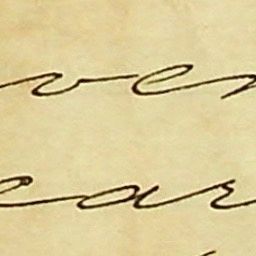 ver
ear